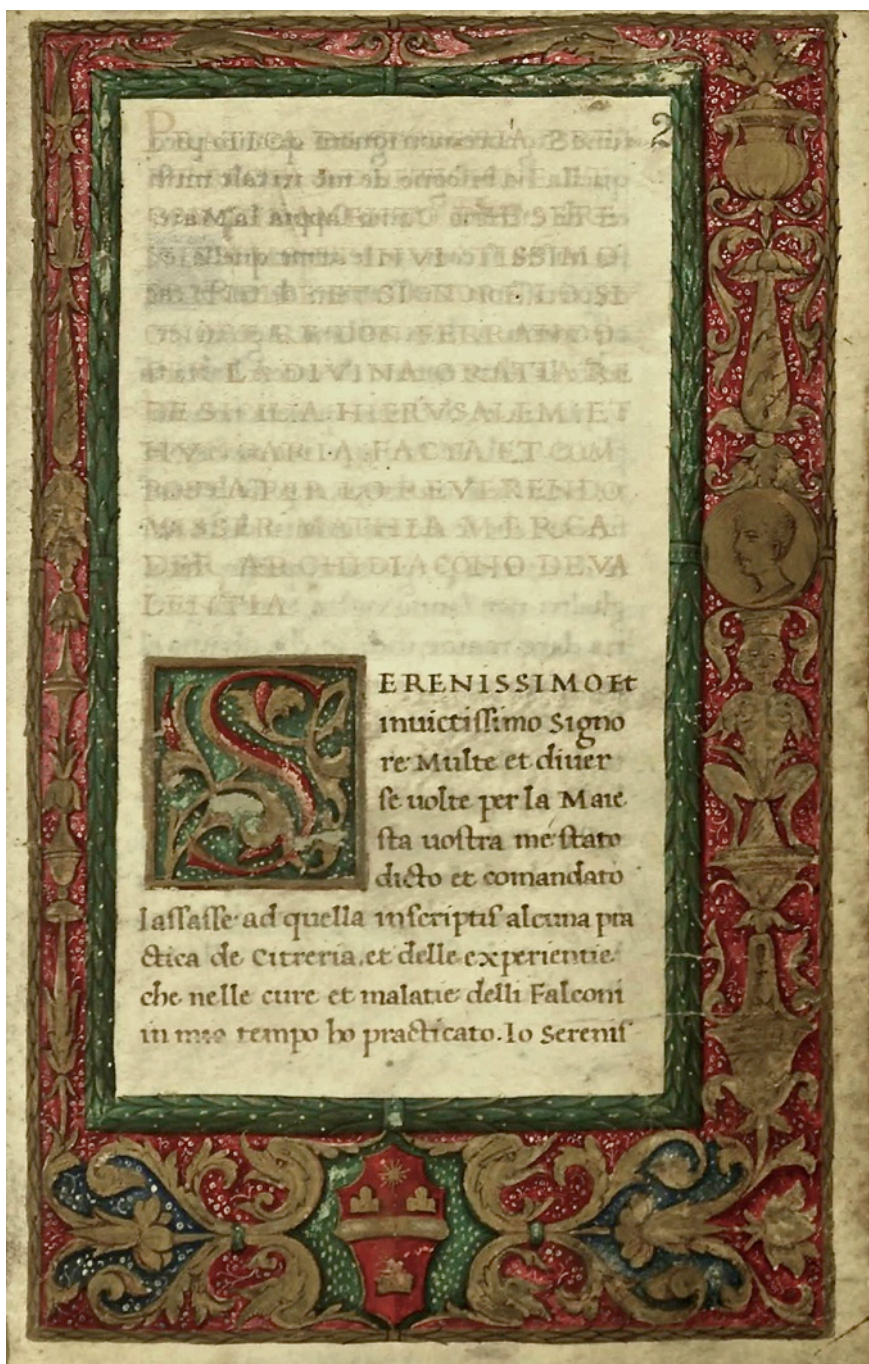 2
GNORE RE DON FERRANDO
PER LA DIVINA GRATIA RE
DE SICILIA HIERVSALEM ET
HVNGARIA FACTA ET COM
POSTA PER LO REVERENDO
MISSER MATHIA MERCA
DER ARCHIDIACONO DE VA
LENTIA
SERENISSIMO Et
inuictissimo Signo
re Multe et diuer
se uolte per la Maie
sta uostra me stato
dicto et comandato
lassasse ad quella inscriptis alcuna pra
ctica de Citreria, et delle experientie
che nelle cure et malatie delli Falconi
in mio tempo ho practicato. Io Serenis